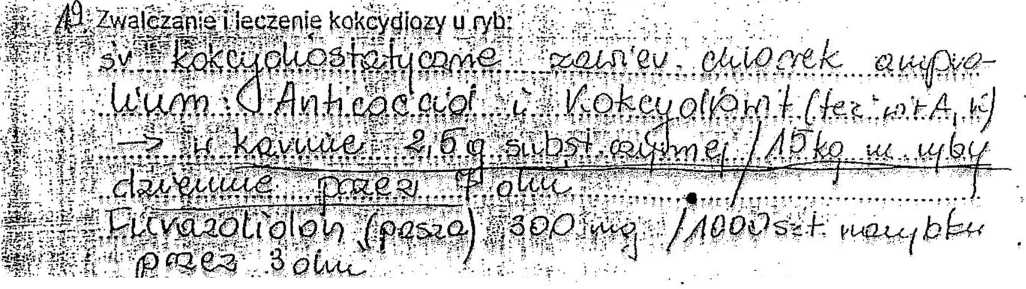 19. Zwalczanie i leczenie kokcydiozy u ryb:
śr kokcydiostatyczne zawier. chlorek ampro-
lium: Anticoccid i Kokcydiowit (też wit A, K)
→ w karmie 2,5g subst. czynnej / 15 kg m. ryby
dziennie przez 7 dni
Furazolidon (pasza) 300 mg / 1000 szt. narybku
przez 3 dni